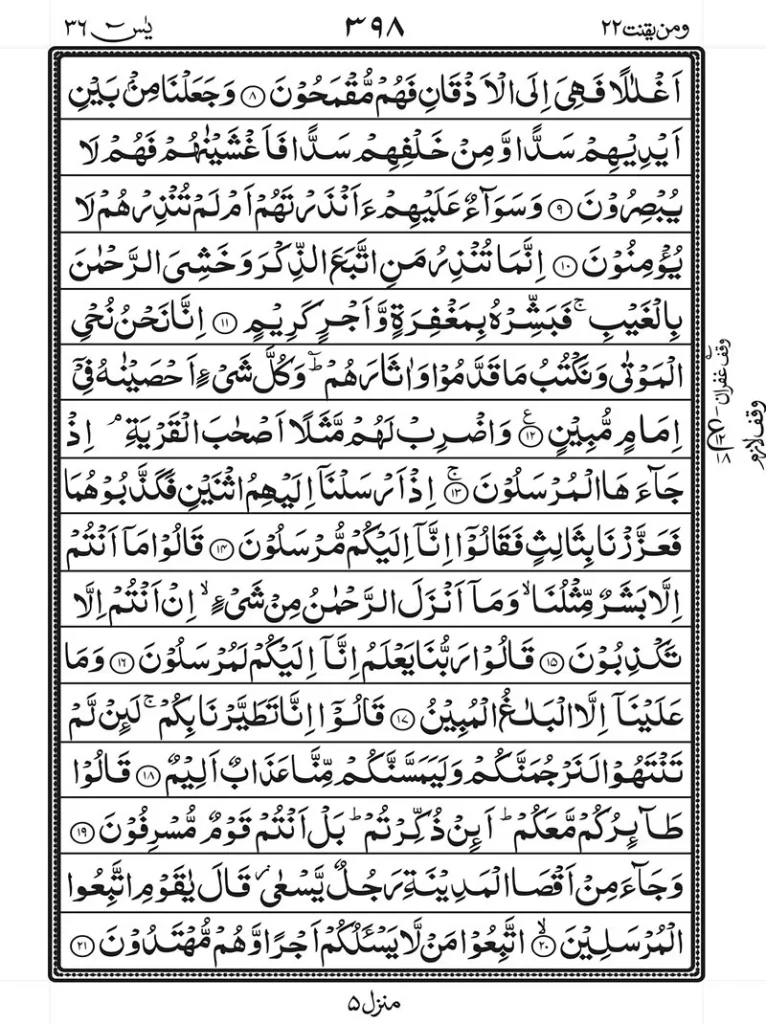 ومن يقنت ٢٢
٣٩٨
يٰسٓ ٣٦
اَغْلٰلًا فَهِىَ اِلَى الْاَذْقَانِ فَهُمْ مُّقْمَحُوْنَ ﴿۸﴾ وَجَعَلْنَا مِنْۢ بَيْنِ
اَيْدِيْهِمْ سَدًّا وَّمِنْ خَلْفِهِمْ سَدًّا فَاَغْشَيْنٰهُمْ فَهُمْ لَا
يُبْصِرُوْنَ ﴿۹﴾ وَسَوَآءٌ عَلَيْهِمْ ءَاَنْذَرْتَهُمْ اَمْ لَمْ تُنْذِرْهُمْ لَا
يُؤْمِنُوْنَ ﴿۱۰﴾ اِنَّمَا تُنْذِرُ مَنِ اتَّبَعَ الذِّكْرَ وَخَشِىَ الرَّحْمٰنَ
بِالْغَيْبِ ۚ فَبَشِّرْهُ بِمَغْفِرَةٍ وَّاَجْرٍ كَرِيْمٍ ﴿۱۱﴾ اِنَّا نَحْنُ نُحْىِ
الْمَوْتٰى وَنَكْتُبُ مَا قَدَّمُوْا وَاٰثَارَهُمْ ؕ وَكُلَّ شَىْءٍ اَحْصَيْنٰهُ فِىْٓ
اِمَامٍ مُّبِيْنٍ ﴿۱۲﴾ وَاضْرِبْ لَهُمْ مَّثَلًا اَصْحٰبَ الْقَرْيَةِ ۘ اِذْ
جَآءَهَا الْمُرْسَلُوْنَ ﴿۱۳﴾ ۚ اِذْ اَرْسَلْنَاۤ اِلَيْهِمُ اثْنَيْنِ فَكَذَّبُوْهُمَا
فَعَزَّزْنَا بِثَالِثٍ فَقَالُوْۤا اِنَّاۤ اِلَيْكُمْ مُّرْسَلُوْنَ ﴿۱۴﴾ قَالُوْا مَاۤ اَنْتُمْ
اِلَّا بَشَرٌ مِّثْلُنَا ۙ وَمَاۤ اَنْزَلَ الرَّحْمٰنُ مِنْ شَىْءٍ ۙ اِنْ اَنْتُمْ اِلَّا
تَكْذِبُوْنَ ﴿۱۵﴾ قَالُوْا رَبُّنَا يَعْلَمُ اِنَّاۤ اِلَيْكُمْ لَمُرْسَلُوْنَ ﴿۱۶﴾ وَمَا
عَلَيْنَاۤ اِلَّا الْبَلٰغُ الْمُبِيْنُ ﴿۱۷﴾ قَالُوْۤا اِنَّا تَطَيَّرْنَا بِكُمْ ۚ لَئِنْ لَّمْ
تَنْتَهُوْا لَنَرْجُمَنَّكُمْ وَلَيَمَسَّنَّكُمْ مِّنَّا عَذَابٌ اَلِيْمٌ ﴿۱۸﴾ قَالُوْا
طَآئِرُكُمْ مَّعَكُمْ ؕ اَئِنْ ذُكِّرْتُمْ ؕ بَلْ اَنْتُمْ قَوْمٌ مُّسْرِفُوْنَ ﴿۱۹﴾
وَجَآءَ مِنْ اَقْصَا الْمَدِيْنَةِ رَجُلٌ يَّسْعٰى قَالَ يٰقَوْمِ اتَّبِعُوا
الْمُرْسَلِيْنَ ﴿۲۰﴾ ۙ اتَّبِعُوْا مَنْ لَّا يَسْئَلُكُمْ اَجْرًا وَّهُمْ مُّهْتَدُوْنَ ﴿۲۱﴾
وقف غفران
وقف لازم
منزل ۵